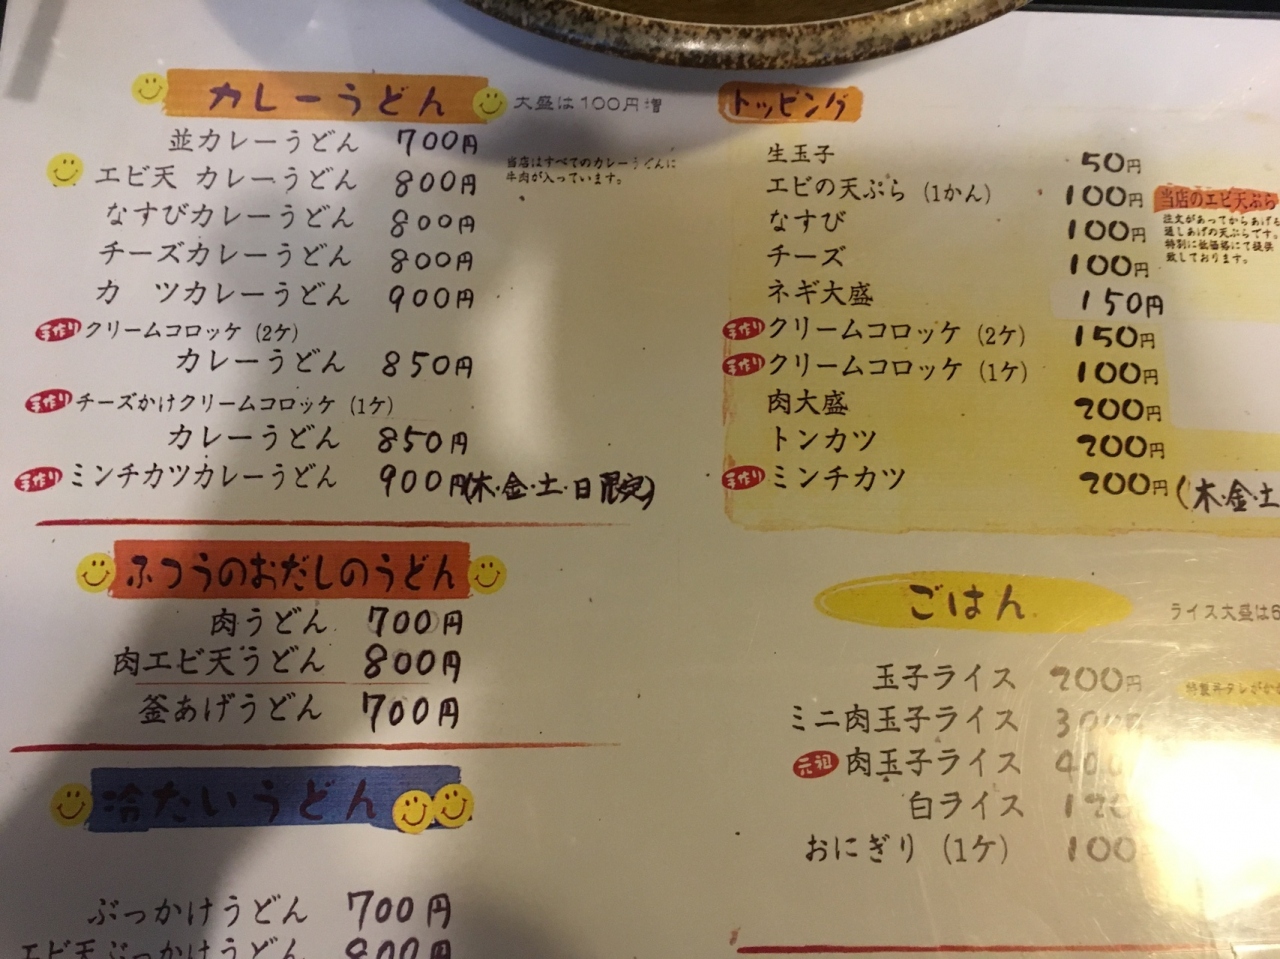 カレーうどん
大盛は100円増
並カレーうどん 700円
当店はすべてのカレーうどんに
牛肉が入っています。
エビ天 カレーうどん 800円
なすびカレーうどん 800円
チーズカレーうどん 800円
カ ツカレーうどん 900円
手作り クリームコロッケ (2ケ)
カレーうどん 850円
手作り チーズかけクリームコロッケ (1ケ)
カレーうどん 850円
手作り ミンチカツカレーうどん 900円(木・金・土・日限定)
ふつうのおだしのうどん
肉うどん 700円
肉エビ天うどん 800円
釜あげうどん 700円
冷たいうどん
ぶっかけうどん 700円
エビ天ぶっかけうどん 800円
トッピング
生玉子 50円
エビの天ぷら (1かん) 100円
なすび 100円
チーズ 100円
ネギ大盛 150円
手作り クリームコロッケ (2ケ) 150円
手作り クリームコロッケ (1ケ) 100円
肉大盛 200円
トンカツ 200円
手作り ミンチカツ 200円 (木・金・土
当店のエビ天ぷら
注文があってからあげる
通しあげの天ぷらです。
特別に低価格にて提供
致しております。
ごはん
ライス大盛は6
玉子ライス 200円
特製丼タレがか
ミニ肉玉子ライス 300円
元祖 肉玉子ライス 400
白ライス 120
おにぎり (1ケ) 100